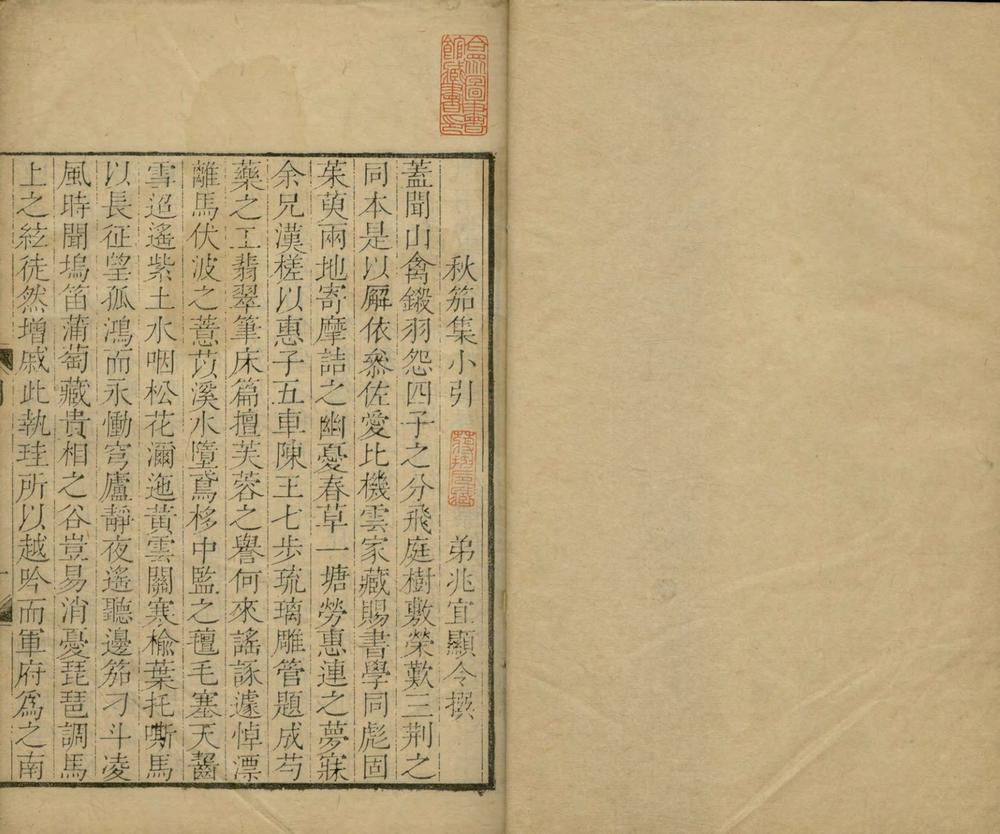 合眾圖書館藏書印
秋笳集小引　弟兆宜顯令撰
蓋聞山禽鎩羽怨四子之分飛庭樹敷榮歎三荆之
同本是以屛依叅佐愛比機雲家藏賜書學同彪固
茱萸兩地寄摩詰之幽憂春草一塘勞惠連之夢寐
余兄漢槎以惠子五車陳王七步琉璃雕管題成芍
藥之工翡翠筆床篇擅芙蓉之譽何來謠諑遽悼漂
離馬伏波之薏苡溪水墮鳶移中監之氊毛塞天齧
雪迢遙紫土水咽松花瀰迤黃雲關寒榆葉托嘶馬
以長征望孤鴻而永慟穹廬靜夜遙聽邊笳刁斗凌
風時聞塢笛蒲萄藏貴相之谷豈易消憂琵琶調馬
上之絃徒然增戚此執珪所以越吟而軍府爲之南